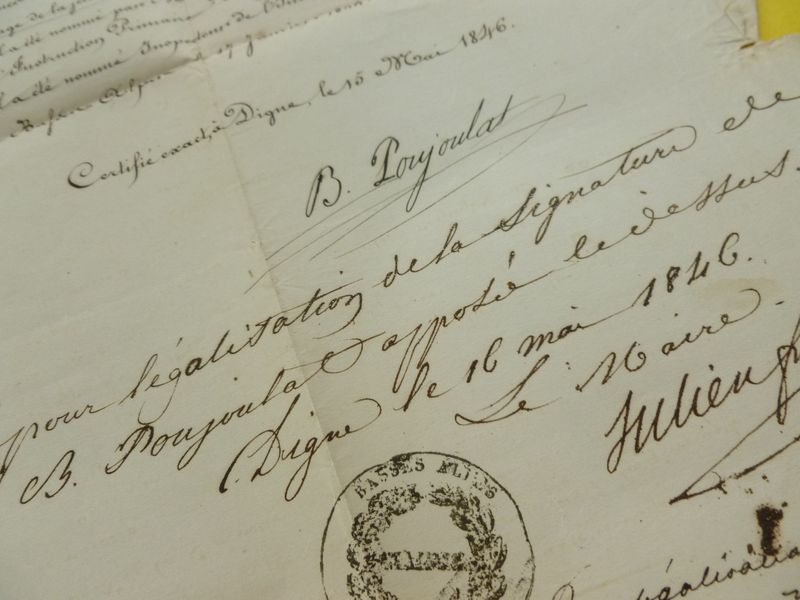 a été nommé par
Instruction Primaire
a été nommé Inspecteur de l'
Basses Alpes 17 Janvier
Certifié exact, à Digne, le 15 Mai 1846.
B. Poujoulat
pour légalisation de la signature de
B. Poujoulat apposée ci dessus.
Digne le 16 mai 1846.
Le Maire.
Julien
BASSES ALPES
légalisation